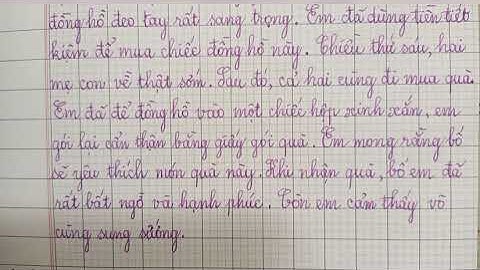 đồng hồ đeo tay rất sang trọng. Em đã dùng tiền tiết
kiệm để mua chiếc đồng hồ này. Chiều thứ sáu, hai
mẹ con về thật sớm. Sau đó, cả hai cùng đi mua quà.
Em đã để đồng hồ vào một chiếc hộp xinh xắn, em
gói lại cẩn thận bằng giấy gói quà. Em mong rằng bố
sẽ yêu thích món quà này. Khi nhận quà, bố em đã
rất bất ngờ và hạnh phúc. Còn em cảm thấy vô
cùng sung sướng.